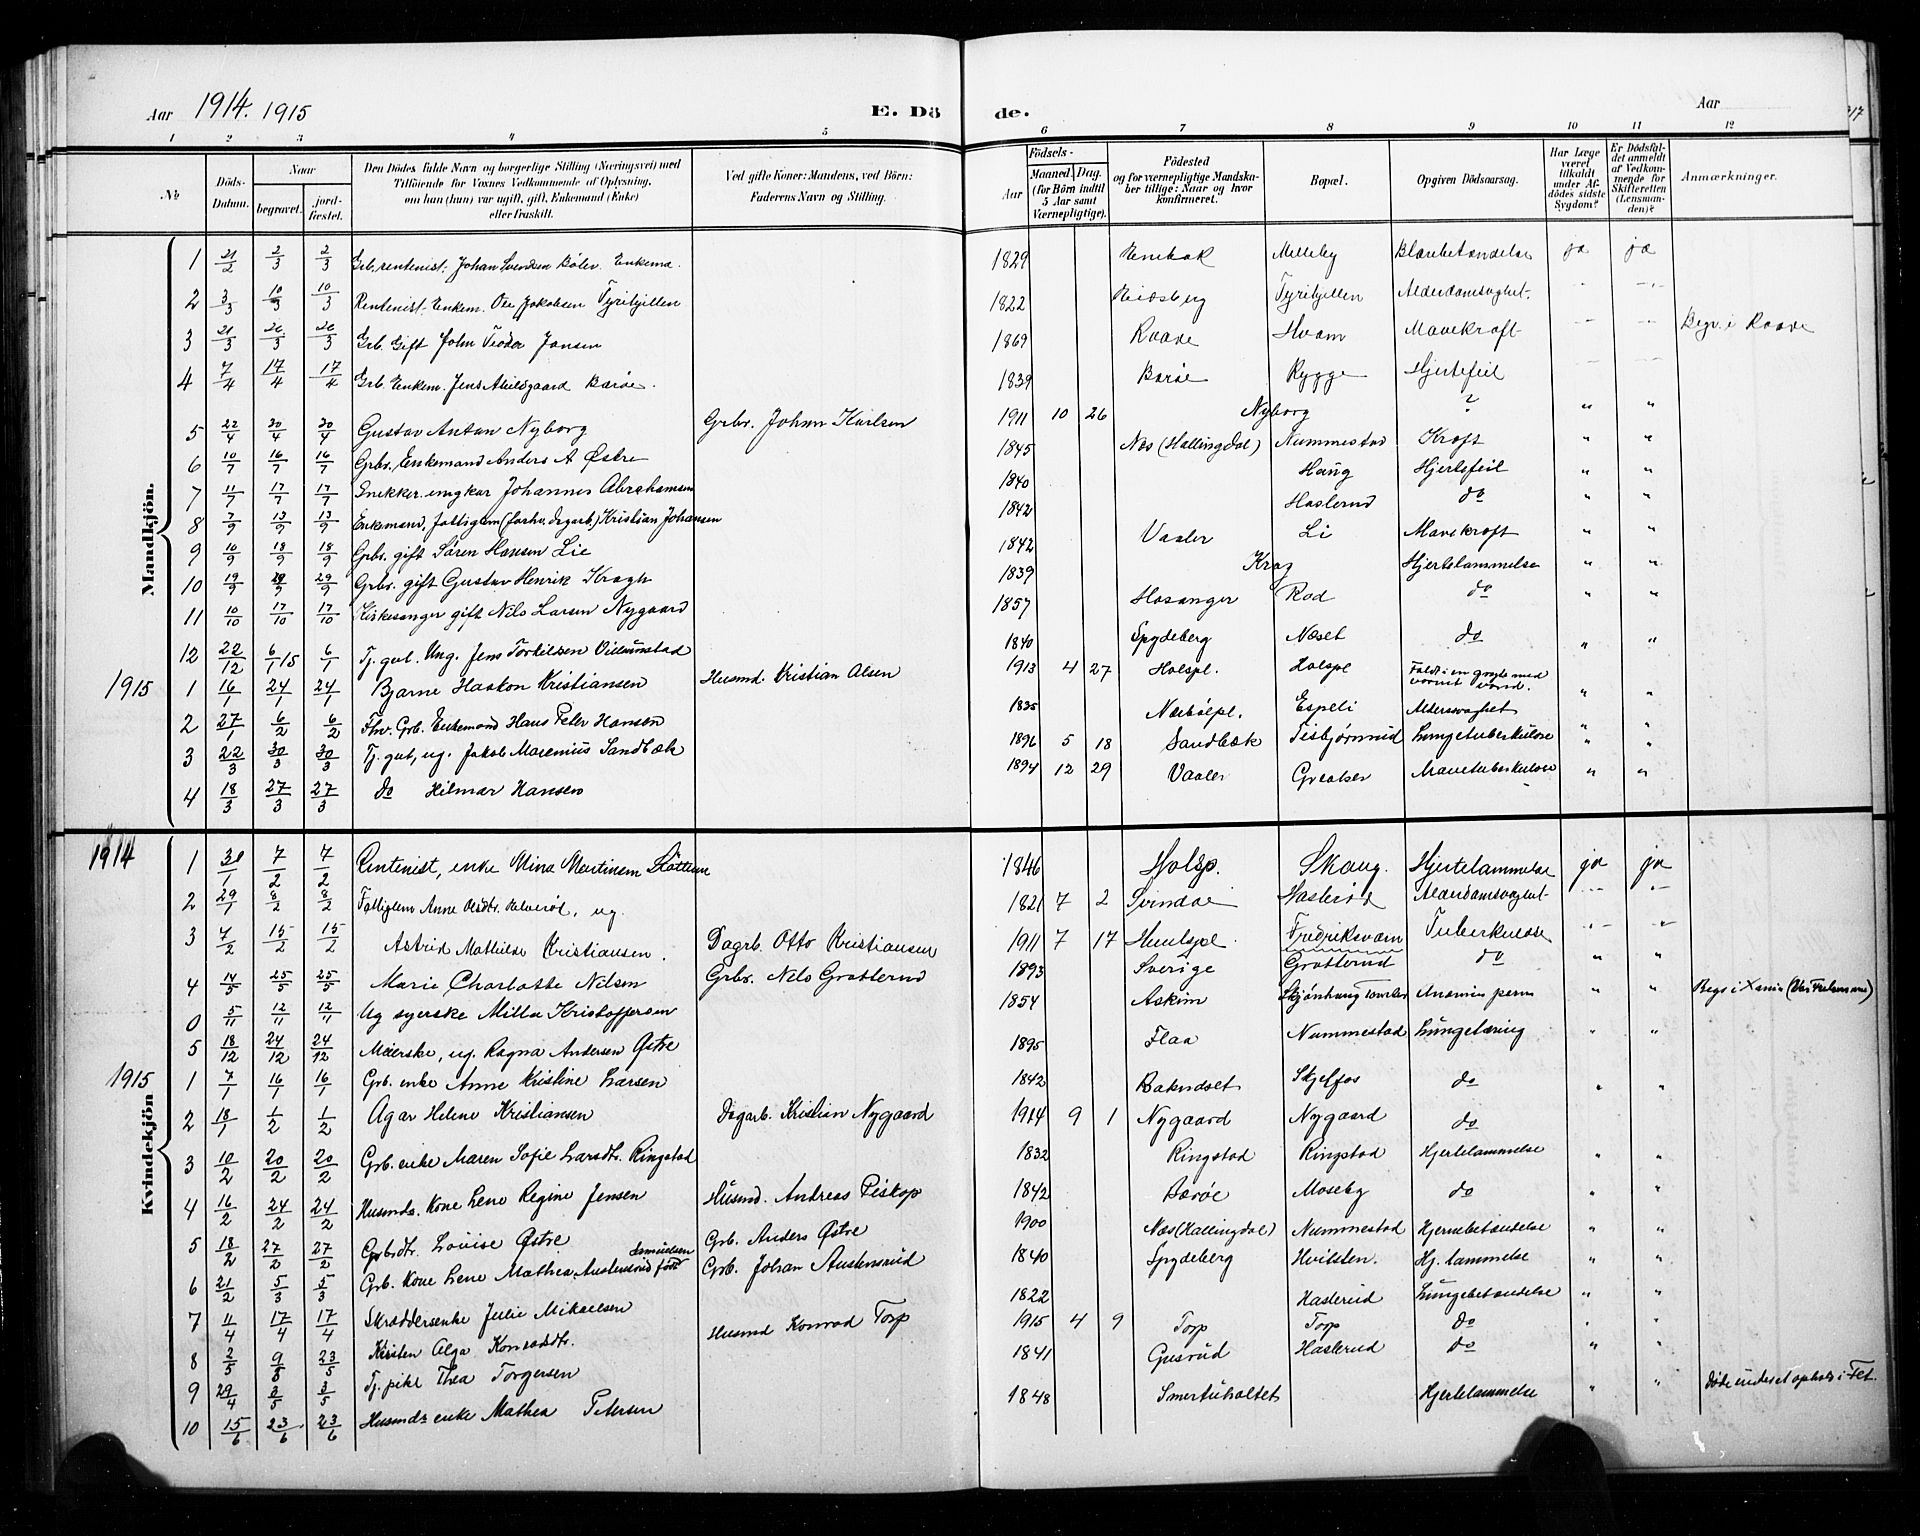 Aar 1914. 1915 E. Dö de. Aar 317
1 2 3 4 5 6 7 8 9 10 11 12
No Döds-Datum. Naar begravet. jordfæstet. Den Dödes fulde Navn og borgerlige Stilling (Næringsvei) med Tilföiende for Voxnes Vedkommende af Oplysning, om han (hun) var ugift, gift, Enkemand (Enke) eller fraskilt. Ved gifte Koner: Mandens, ved Börn: Faderens Navn og Stilling. Födsels- Aar Maaned. Dag. (for Börn indtil 5 Aar samt Værnepligtige). Födested og for værnepligtige Mandskaber tillige: Naar og hvor konfirmeret. Bopæl. Opgiven Dödsaarsag. Har Læge været tilkaldt under Afdödes sidste Sygdom? Er Dödsfaldet anmeldt af Vedkommende for Skifteretten (Lensmanden)? Anmærkninger.
Mandkjön.
1 21/2 2/3 2/3 Grb. rentenist. Johan Svendsen Enkema. 1829 Enebak Melleby Blærebetændelse ja ja
2 3/3 10/3 10/3 Rentenist Enkem. Ole Jakobsen Tyrihjellen 1822 Eidsberg Tyrihjellen Alderdomsvaghet - -
3 21/3 26/3 26/3 Grb. Gift John Teodor Jansen 1869 Raade Hvam Mavekræft - - Begr. i Raade
4 7/4 17/4 17/4 Grb. Enkem. Jens Barøe. 1839 Barøe Rygge Hjertefeil - -
5 22/4 30/4 30/4 Gustav Antan Nyborg Grbr. Johan Karlsen 1911 10 26 Nyborg ? " "
6 10/7 16/7 16/7 Grbr. Enkemand Anders A Østre 1845 Næs (Hallingdal) Nummestad Kræft " "
7 11/7 17/7 17/7 Snekker. ungkar Johannes Abrahamsen 1840 Haug Hjertefeil " "
8 7/9 13/9 13/9 Enkemand, fattiglem (forhv. dagarb.) Kristian Johansen 1842 Haslerud do " "
9 10/9 18/9 18/9 Grbr. gift Søren Hansen Lie 1842 Vaaler Li Mavekræft " "
10 19/9 29/9 29/9 Grbr. gift Gustav Henrik Kragh 1839 Krag Hjertelammelse " "
11 10/10 17/10 17/10 Kirkesanger gift Nils Larsen Nygaard 1857 Hosanger Rød do " "
12 22/12 6/1 15 6/1 Tj. gut. Ung. Jens Torkildsen 1840 Spydeberg Næset do " "
1915 1 16/1 24/1 24/1 Bjarne Haakon Kristiansen Husmd. Kristian Olsen 1913 4 27 Holspl. Holspl Faldt i en gryte med varmt vand. " "
2 27/1 6/2 6/2 Fhv. Grb. Enkemand Hans Peter Hansen 1835 Espeli Aldersvaghet " "
3 22/3 30/3 30/3 Tj. gut, ug. Jakob Marenius Sandbæk 1896 5 18 Sandbæk Tisbjørnrud Lungetuberkulose " "
4 18/3 27/3 27/3 do Hilmar Hansen 1894 12 29 Vaaler Mavetuberkulose " "
1914
Kvindekjön
1 31/1 7/2 7/2 Rentenist, enke Mina Martinsen 1846 Holsp. Skaug. Hjertelammelse ja ja
2 29/1 8/2 8/2 Fattiglem Anne Olsdtr. ug. 1821 7 2 Svindal Haslerød Alderdomsvaghet - -
3 7/2 15/2 15/2 Astrid Mathilde Kristiansen. Dagrb. Otto Kristiansen 1911 7 17 Fredriksværn Tuberkulose - "
4 14/5 25/5 25/5 Marie Charlotte Nilsen Grbr. Nils Grøtterud 1893 Sverige Grøtterud do " "
0 5/11 12/11 12/11 Ug syerske Milla Kristoffersen 1854 Askim Skjønhaug Anæmia pern " " Begr i Xania
5 18/12 24/12 24/12 Meierske, ug. Ragna Andersen Østre 1895 Flaa Nummestad Lungetæring " "
1915 1 7/1 16/1 16/1 Grb. enke Anne Kristine Larsen 1842 Skjelfos do " "
2 18/1 1/2 1/2 Agar Helene Kristiansen Dagarb. Kristian Nygaard 1914 9 1 Nygaard Nygaard do
3 10/2 20/2 20/2 Grb. enke Maren Sofie Larsdtr. Ringstad 1832 Ringstad Ringstad Hjertelammelse " "
4 16/2 24/2 24/2 Husmds. Kone Lene Regine Jensen Husmd. Andreas Piskop 1842 Barøe Moseby do " "
5 18/2 27/2 27/2 Grbrdtr. Lovise Østre Grb. Anders Østre 1900 Næs (Hallingdal) Nummestad Hjernebetændelse " "
6 21/2 5/3 5/3 Grb. Kone Lene Mathea Austensrud født Samuelsen Grb. Johan Austensrud 1840 Spydeberg Hvitsten. Hj. lammelse " "
7 11/4 17/4 17/4 Skræddersenke Julie Mikaelsen 1822 Haslerud Lungebetændelse " "
8 2/5 9/8 23/5 Kirsten Alga Konradsdtr. Husmd Konrad Torp 1915 4 9 Torp Torp do " "
9 29/4 3/5 3/5 Tj. pike Thea Torgersen 1841 Gusrud Haslerud do " "
10 15/6 23/6 23/6 Husmds enke Mathea Petersen 1848 Hjertelammelse " " døde under et ophold i Fet.